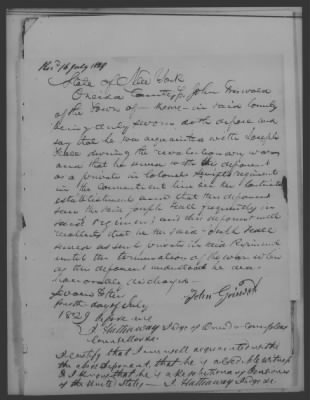 Rec'd 16 July 1829
State of New York
Oneida County John Griswold
of the Town of Rome in said County
being duly sworn doth depose and
say that he was acquainted with Joseph
Hall during the revolutionary war
and that he served with the deponent
as a private in Colonel regiment
in the Connecticut line on Continental
establishment and that this deponent
saw the said Joseph Hall frequently in
said regiment and this deponent well
recollects that he the said Joseph Hall
served as such private in said Regiment
until the termination of the war when
as this deponent understood he was
honorably discharged
Sworn to this
fourth day of July
John Griswold
1829 before me
J. Hathaway Judge of Oneida Com pleas
I certify that I am well acquainted with
the above deponent, that he is a credible witness
& I know that he is a Revolutionary Pensioner
of the United States J. Hathaway Judge